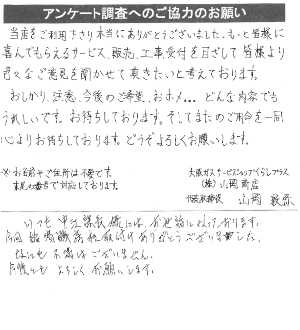 アンケート調査へのご協力のお願い
当店をご利用下さり本当にありがとうございました。もっと皆様に
喜んでもらえるサービス、販売、工事受付を目ざして皆様より
色々なご意見を聞かせて頂きたいと考えております。
おしかり、注意、今後のご希望、おホメ… どんな内容でも
うれしいです。お待ちしております。そしてまたのご用命を一同
心よりお待ちしております。どうぞよろしくお願いします。
※お名前やご住所は不要です。
大阪ガスサービスショップくらしプラス
(株)山岡商店
代表取締役 山岡
いつも には お世話になっております。
今回 ありがとうございました。
なにも不満はございません。
今後とも よろしくお願いします。